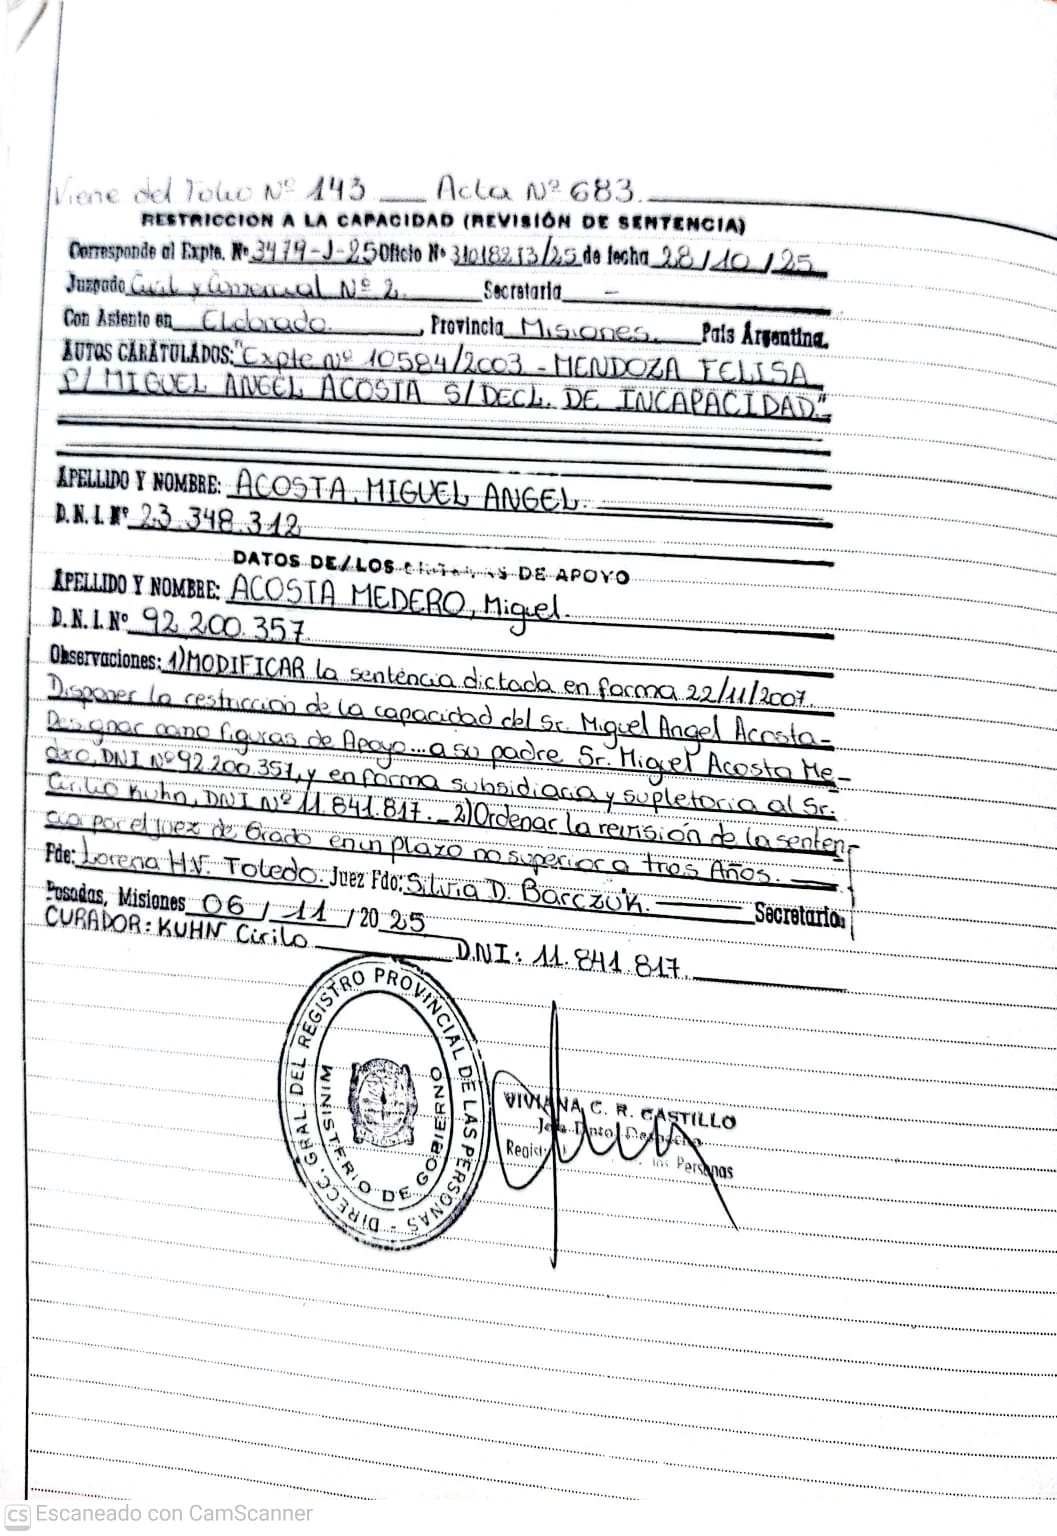 Viene del Folio Nº 143 ___ Acta Nº 683.
RESTRICCION A LA CAPACIDAD (REVISIÓN DE SENTENCIA)
Corresponde al Expte. Nº 3479-J-25 Oficio Nº 31018213/25 de fecha 28/10/25
Juzgado Civil y Comercial Nº 2. Secretaria -
Con Asiento en Eldorado. , Provincia Misiones. País Argentina.
AUTOS CARATULADOS: "Expte Nº 10584/2003 - MENDOZA FELISA
P/ MIGUEL ANGEL ACOSTA S/ DECL. DE INCAPACIDAD."
APELLIDO Y NOMBRE: ACOSTA, MIGUEL ANGEL.
D.N.I. Nº 23.348.312
DATOS DE/LOS DE APOYO
APELLIDO Y NOMBRE: ACOSTA MEDERO, Miguel.
D.N.I. Nº 92.200.357
Observaciones: 1) MODIFICAR la sentencia dictada en forma 22/11/2007.
Disponer la restricción de la capacidad del Sr. Miguel Angel Acosta-
Designar como figuras de Apoyo... a su padre Sr. Miguel Acosta Me-
dero, DNI Nº 92.200.357, y en forma subsidiaria y supletoria al Sr.
Cirilo Kuhn, DNI Nº 11.841.817._ 2) Ordenar la revisión de la senten-
cia por el juez de Grado en un plazo no superior a tres Años.
Fdo: Lorena H.V. Toledo. Juez Fdo: Silvia D. Barczuk. Secretaria
Posadas, Misiones 06 / 11 / 2025
CURADOR: KUHN Cirilo D.NI: 11.841.817.
DIRECC. GRAL. DEL REGISTRO PROVINCIAL DE LAS PERSONAS -
MINISTERIO DE GOBIERNO
VIVIANA C. R. CASTILLO
Jefa Dpto. Despacho
Regist las Personas
CS Escaneado con CamScanner